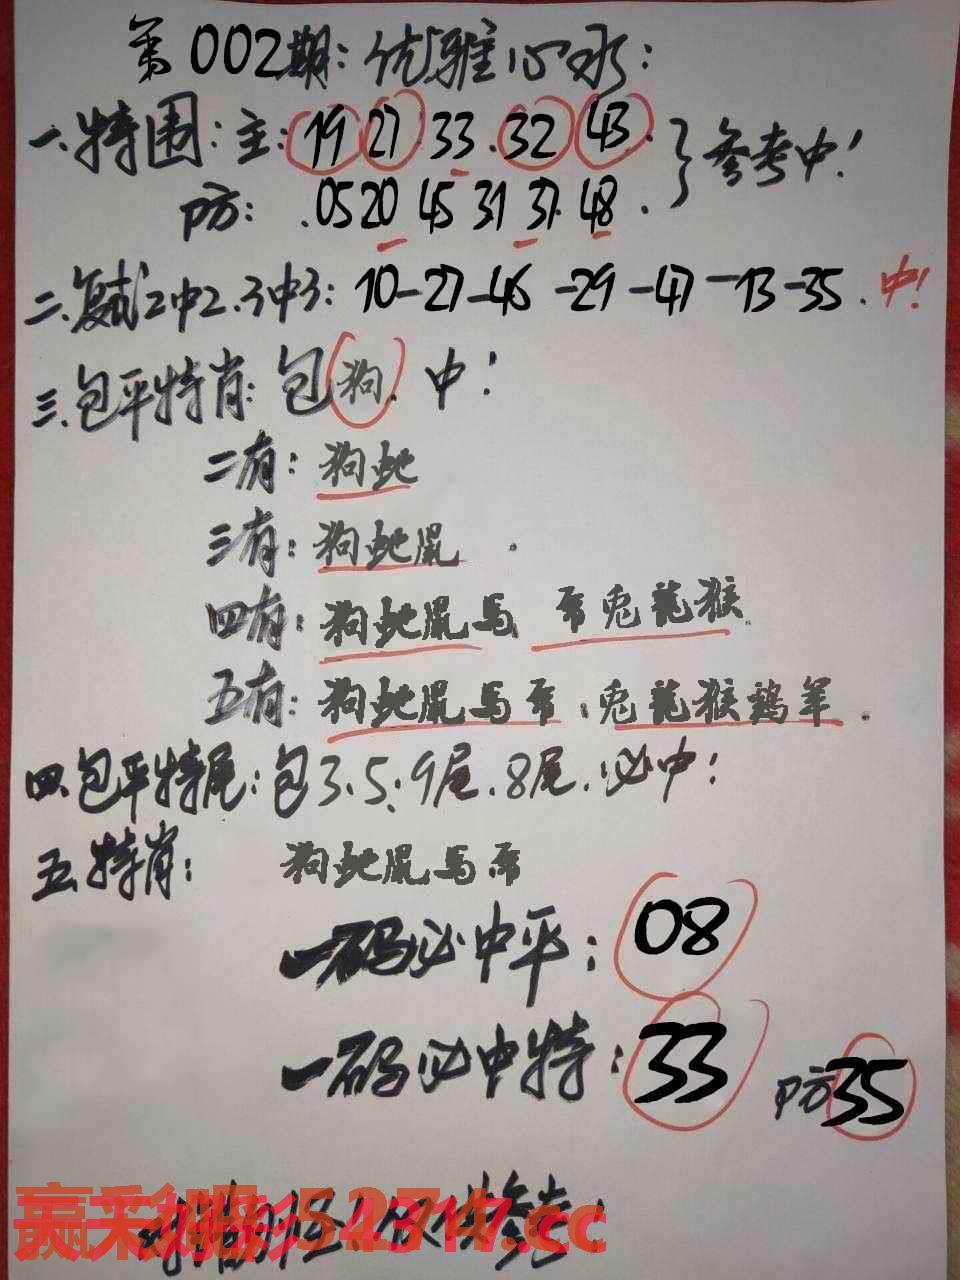 第002期:优雅心水:
一.特围:主:19 27 33.32 43.}参考中!
防:.05 20 45 31 37.48.
二.复式2中2.3中3:10-27-46-29-47-13-35.中!
三.包平特肖:包狗.中!
二有:狗蛇
三有:狗蛇鼠.
四有:狗蛇鼠马 虎兔龙猴.
五有:狗蛇鼠马虎:兔龙猴鸡羊.
四.包平特尾:包3.5.9尾.8尾.必中!
五.特肖:狗蛇鼠马虎
一码必中平:08
一码必中特:33 防35
赢彩 .cc